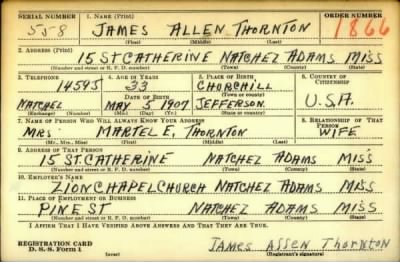 SERIAL NUMBER 1. NAME (Print) ORDER NUMBER
558 JAMES ALLEN THORNTON 1866
(First) (Middle) (Last)
2. ADDRESS (Print)
15 ST CATHERINE NATCHEZ ADAMS MISS
(Number and street or R. F. D. number) (Town) (County) (State)
3. TELEPHONE 4. AGE IN YEARS 5. PLACE OF BIRTH 6. COUNTRY OF CITIZENSHIP
1459J 33 CHURCHILL
DATE OF BIRTH (Town or county)
NATCHEZ MAY 5 1907 JEFFERSON U.S.A.
(Exchange) (Number) (Mo.) (Day) (Yr.) (State or country)
7. NAME OF PERSON WHO WILL ALWAYS KNOW YOUR ADDRESS 8. RELATIONSHIP OF THAT PERSON
MRS. MARTEL E. THORNTON WIFE
(Mr., Mrs., Miss) (First) (Middle) (Last)
9. ADDRESS OF THAT PERSON
15 ST. CATHERINE NATCHEZ ADAMS MISS
(Number and street or R. F. D. number) (Town) (County) (State)
10. EMPLOYER'S NAME
ZION CHAPEL CHURCH NATCHEZ ADAMS MISS
11. PLACE OF EMPLOYMENT OR BUSINESS
PINE ST NATCHEZ ADAMS MISS
(Number and street or R. F. D. number) (Town) (County) (State)
I AFFIRM THAT I HAVE VERIFIED ABOVE ANSWERS AND THAT THEY ARE TRUE.
REGISTRATION CARD
D. S. S. Form 1 (over) James Allen Thornton
(Registrant's signature)